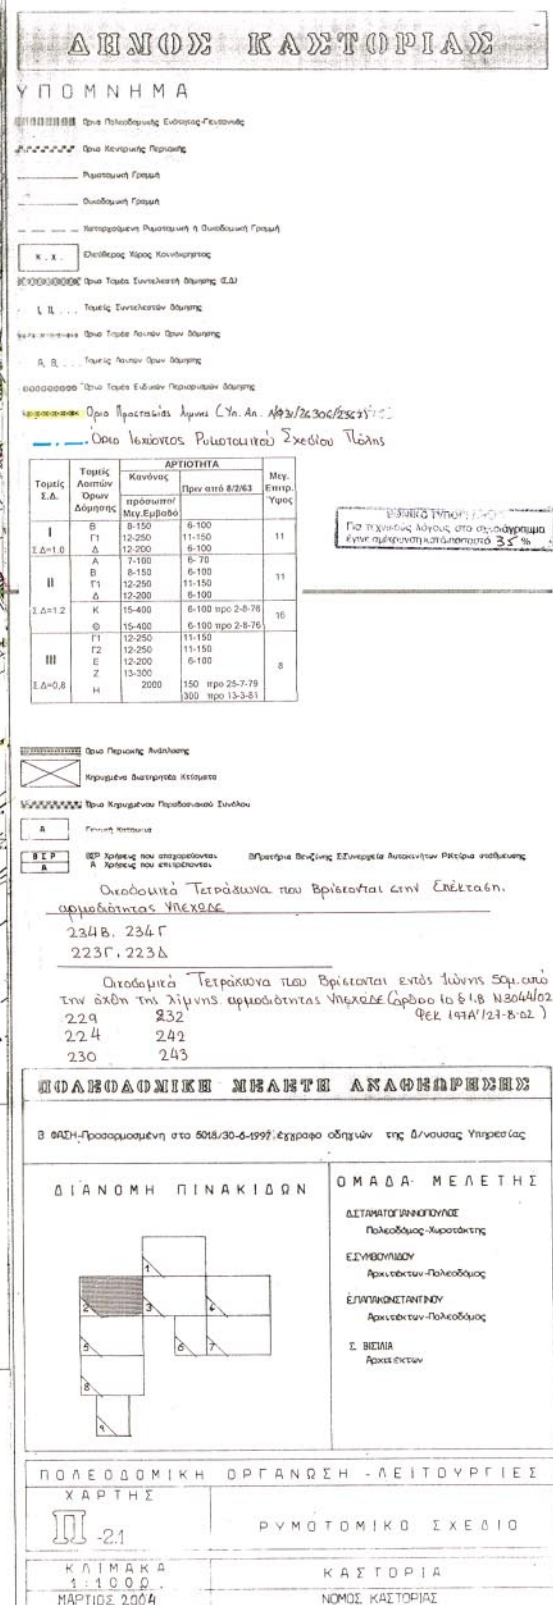 ΔΗΜΟΣ ΚΑΣΤΟΡΙΑΣ
ΥΠΟΜΝΗΜΑ
Όρια Πολεοδομικής Ενότητας-Γειτονιάς
Όρια Κεντρικής Περιοχής
Ρυμοτομική Γραμμή
Οικοδομική Γραμμή
Καταργούμενη Ρυμοτομική ή Οικοδομική Γραμμή
Κ.Χ. Ελεύθερος Χώρος Κοινόχρηστος
Όριο Τομέα Συντελεστή δόμησης (Σ.Δ)
Ι, ΙΙ, ... Τομείς Συντελεστών δόμησης
Όριο Τομέα Λοιπών Όρων δόμησης
Α, Β, ... Τομείς Λοιπών Όρων δόμησης
Όριο Τομέα Ειδικών Περιορισμών δόμησης
Όριο Προστασίας Λίμνης (Υπ. Απ.
Όριο Ισχύοντος Ρυμοτομικού Σχεδίου Πόλης
Τομείς Σ.Δ. Τομείς Λοιπών Όρων Δόμησης ΑΡΤΙΟΤΗΤΑ Μεγ. Επιτρ. Ύψος
Κανόνας Πριν από 8/2/63
πρόσωπο/ Μεγ.Εμβαδό
Ι Β 8-150 6-100 11
Γ1 12-250 11-150
Σ.Δ=1.0 Δ 12-200 6-100
Α 7-100 6-70
ΙΙ Β 8-150 6-100 11
Γ1 12-250 11-150
Δ 12-200 6-100
Σ.Δ=1.2 Κ 15-400 6-100 προ 2-8-76 16
Θ 15-400 6-100 προ 2-8-76
Γ1 12-250 11-150
Γ2 12-250 11-150
ΙΙΙ Ε 12-200 6-100 8
Ζ 13-300
Σ.Δ=0,8 Η 2000 150 προ 25-7-79
300 προ 13-3-81
ΕΘΝΙΚΟ ΤΥΠΟΓΡΑΦΕΙΟ
Για τεχνικούς λόγους στο σχεδιάγραμμα
έγινε σμίκρυνση κατά ποσοστό 35 %
Όριο Περιοχής Ανάπλασης
Κηρυγμένα Διατηρητέα Κτίσματα
Όριο Κηρυγμένου Παραδοσιακού Συνόλου
Α Γενική Κατοικία
ΒΣΡ ΒΣΡ Χρήσεις που απαγορεύονται Β:Πρατήρια Βενζίνης Σ:Συνεργεία Αυτοκινήτων Ρ:Κτίρια στάθμευσης
Α Α Χρήσεις που επιτρέπονται
Οικοδομικά Τετράγωνα που βρίσκονται στην Επέκταση.
αρμοδιότητας ΥΠΕΧΩΔΕ
234Β, 234Γ
223Γ, 223Δ
Οικοδομικά Τετράγωνα που βρίσκονται εντός ζώνης 50μ. από
την όχθη της λίμνης. αρμοδιότητας ΥΠΕΧΩΔΕ (άρθρο 10 § 1.Β Ν3044/02
229 232 ΦΕΚ 197Α'/27-8-02)
224 242
230 243
ΠΟΛΕΟΔΟΜΙΚΗ ΜΕΛΕΤΗ ΑΝΑΘΕΩΡΗΣΗΣ
Β ΦΑΣΗ-Προσαρμοσμένη στο 5018/30-6-1997 έγγραφο οδηγιών της Δ/νουσας Υπηρεσίας
ΔΙΑΝΟΜΗ ΠΙΝΑΚΙΔΩΝ
1
2 3 4
5 6 7
8
9
ΟΜΑΔΑ ΜΕΛΕΤΗΣ
Δ.ΣΤΑΜΑΤΟΓΙΑΝΝΟΠΟΥΛΟΣ
Πολεοδόμος-Χωροτάκτης
Ε.ΣΥΜΒΟΥΛΙΔΟΥ
Αρχιτέκτων-Πολεοδόμος
Ε.ΠΑΠΑΚΩΝΣΤΑΝΤΙΝΟΥ
Αρχιτέκτων-Πολεοδόμος
Σ. ΒΙΣΙΛΙΑ
Αρχιτέκτων
ΠΟΛΕΟΔΟΜΙΚΗ ΟΡΓΑΝΩΣΗ - ΛΕΙΤΟΥΡΓΙΕΣ
ΧΑΡΤΗΣ
Π -2.1
ΡΥΜΟΤΟΜΙΚΟ ΣΧΕΔΙΟ
ΚΛΙΜΑΚΑ
1:1000
ΜΑΡΤΙΟΣ 2004
ΚΑΣΤΟΡΙΑ
ΝΟΜΟΣ ΚΑΣΤΟΡΙΑΣ